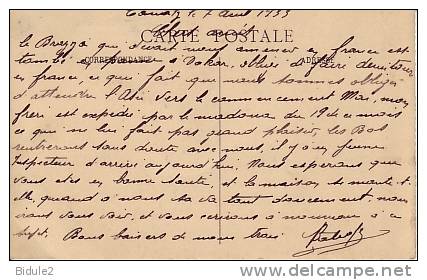 le 7 Avril 1933
Chers amis
CARTE POSTALE
CORRESPONDANCE
ADRESSE
le Brazza qui devait nous amener en france est
tombé en panne a Dakar, obligé de faire demi tour
en france, ce qui fait que nous sommes obligés
d'attendre l'Asie vers le commencement Mai, mon
frere est expedié par le madona du 19 de ce mois
ce qui ne lui fait pas grand plaisir, les Bos
rentrerons sans doute avec nous, il y a eu
Inspecteur d'arrivé aujourd'hui. Nous esperons que
vous etes en bonne santé, et la maison se maintient
elle, quand a nous sa va tout doucement, nous
irons vous voir, et vous ecrirons a nouveau a ce
sujet. Bons baisers de nous trois
Bidule2
DELCAMPE.net